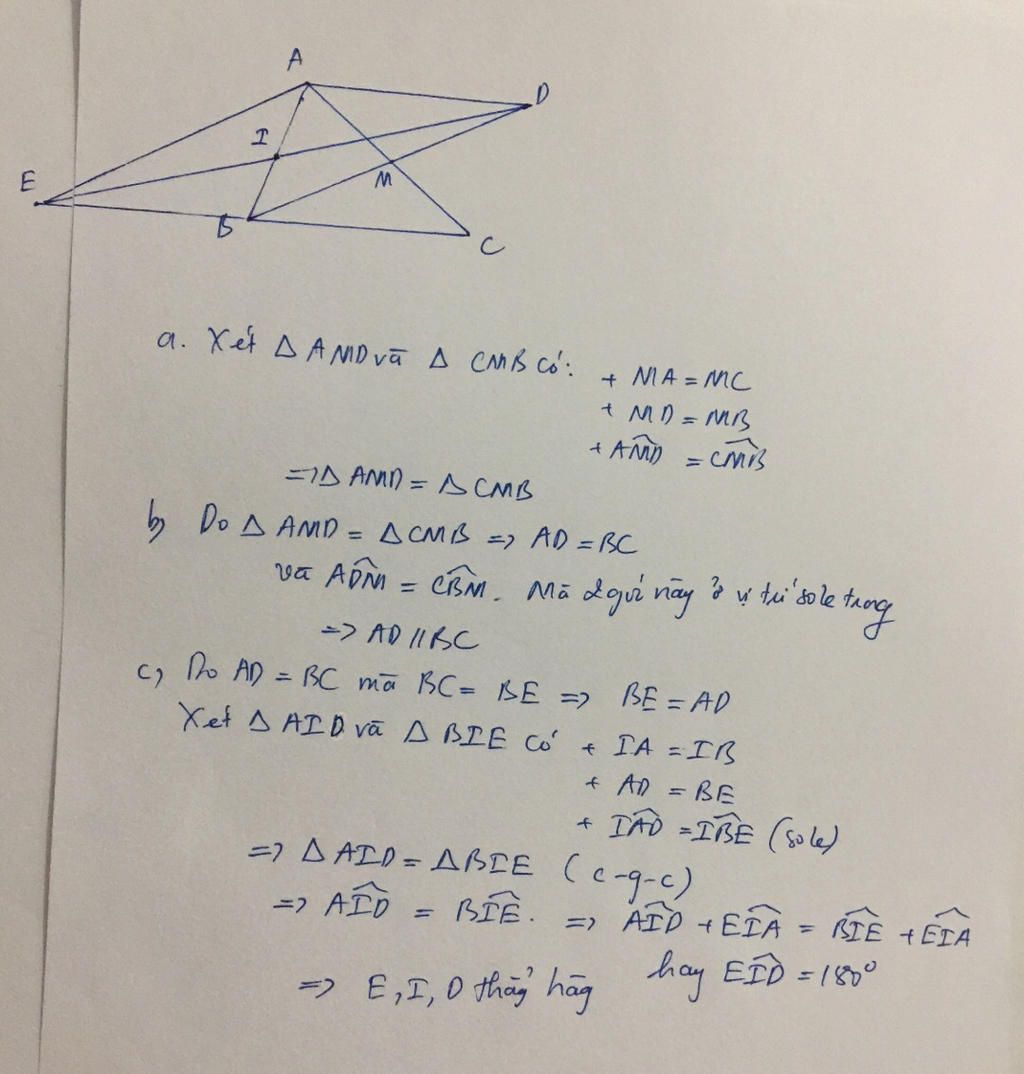 A
D
I
E
M
B
C
a. Xét Δ AMD và Δ CMB có: + MA = MC
+ MD = MB
+ \widehat{AMD} = \widehat{CMB}
=> Δ AMD = Δ CMB
b) Do Δ AMD = Δ CMB => AD = BC
và \widehat{ADM} = \widehat{CBM}. Mà 2 góc này ở vị trí sole trong
=> AD // BC
c) Do AD = BC mà BC = BE => BE = AD
Xét Δ AID và Δ BIE có + IA = IB
+ AD = BE
+ \widehat{IAD} = \widehat{IBE} (sole)
=> Δ AID = Δ BIE (c-g-c)
=> \widehat{AID} = \widehat{BIE}. => \widehat{AID} + \widehat{EIA} = \widehat{BIE} + \widehat{EIA}
hay \widehat{EID} = 180°
=> E, I, D thẳng hàng